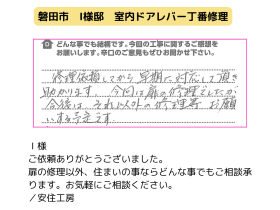 磐田市　I様邸　室内ドアレバー丁番修理
どんな事でも結構です。今回の工事に関するご感想を
お願いします。辛口のご意見もぜひお聞かせ下さい。
修理依頼してから早期に対応して頂き
助かります。今回は扉の修理でしたが
今後は、それ以外の修理等お願
いする予定です。
I 様
ご依頼ありがとうございました。
扉の修理以外、住まいの事ならどんな事でもご相談承
ります。お気軽にご相談ください。
／安住工房